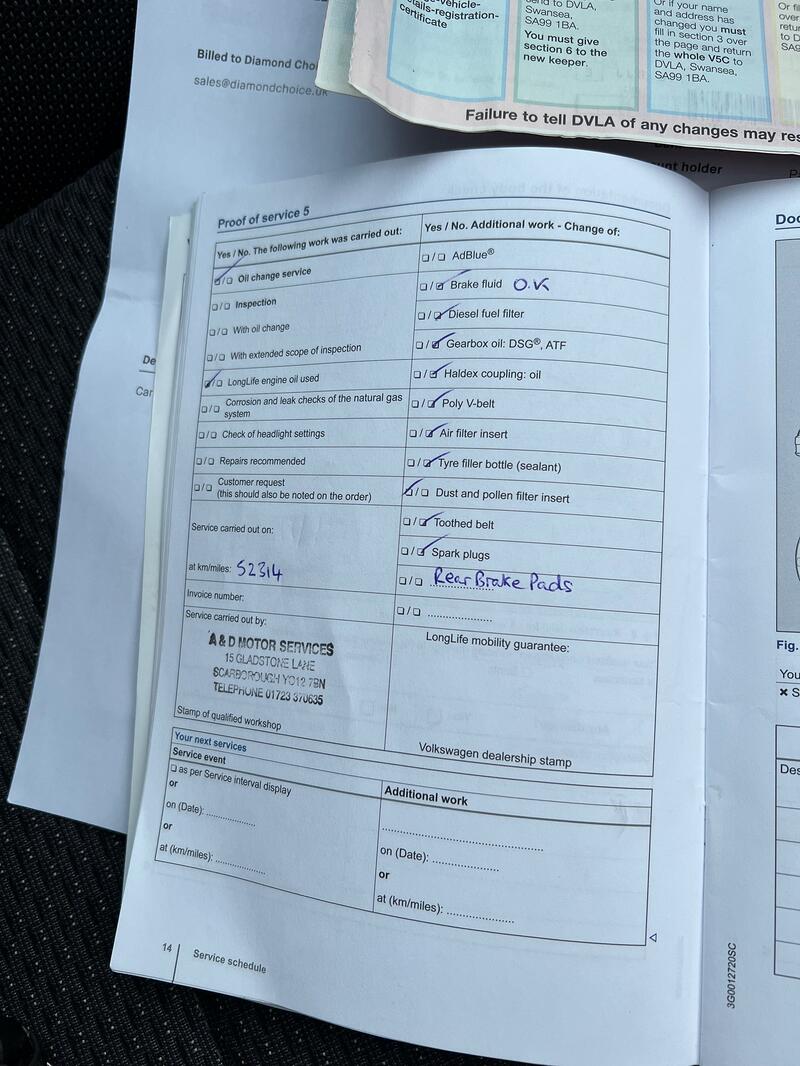 Billed to Diamond Cho
sales@diamondchoice.uk
-vehicle-
tails-registration-
certificate
send to DVLA,
Swansea,
SA99 1BA.
You must give
section 6 to the
new keeper.
Or if your name
and address has
changed you must
fill in section 3 over
the page and return
the whole V5C to
DVLA, Swansea,
SA99 1BA.
Failure to tell DVLA of any changes may res
nt holder
De
Car
Proof of service 5
Yes / No. The following work was carried out:
☑/☐ Oil change service
☐/☐ Inspection
☐/☐ With oil change
☐/☐ With extended scope of inspection
☑/☐ LongLife engine oil used
☐/☐ Corrosion and leak checks of the natural gas
system
☐/☐ Check of headlight settings
☐/☐ Repairs recommended
☐/☐ Customer request
(this should also be noted on the order)
Service carried out on:
at km/miles: 52314
Invoice number:
Service carried out by:
A & D MOTOR SERVICES
15 GLADSTONE LANE
SCARBOROUGH YO12 7BN
TELEPHONE 01723 370635
Stamp of qualified workshop
Yes / No. Additional work - Change of:
☐/☐ AdBlue®
☐/☑ Brake fluid O.K
☐/☑ Diesel fuel filter
☐/☑ Gearbox oil: DSG®, ATF
☐/☑ Haldex coupling: oil
☐/☑ Poly V-belt
☐/☑ Air filter insert
☐/☑ Tyre filler bottle (sealant)
☑/☐ Dust and pollen filter insert
☐/☑ Toothed belt
☐/☑ Spark plugs
☐/☐ Rear Brake Pads
☐/☐ ..................
LongLife mobility guarantee:
Volkswagen dealership stamp
Your next services
Service event
☐ as per Service interval display
or
on (Date): ..............
or
at (km/miles): ..............
Additional work
on (Date): ..................
or
at (km/miles): ..................
14
Service schedule
3G0012720SC
Doc
Fig.
You
✖ S
Des